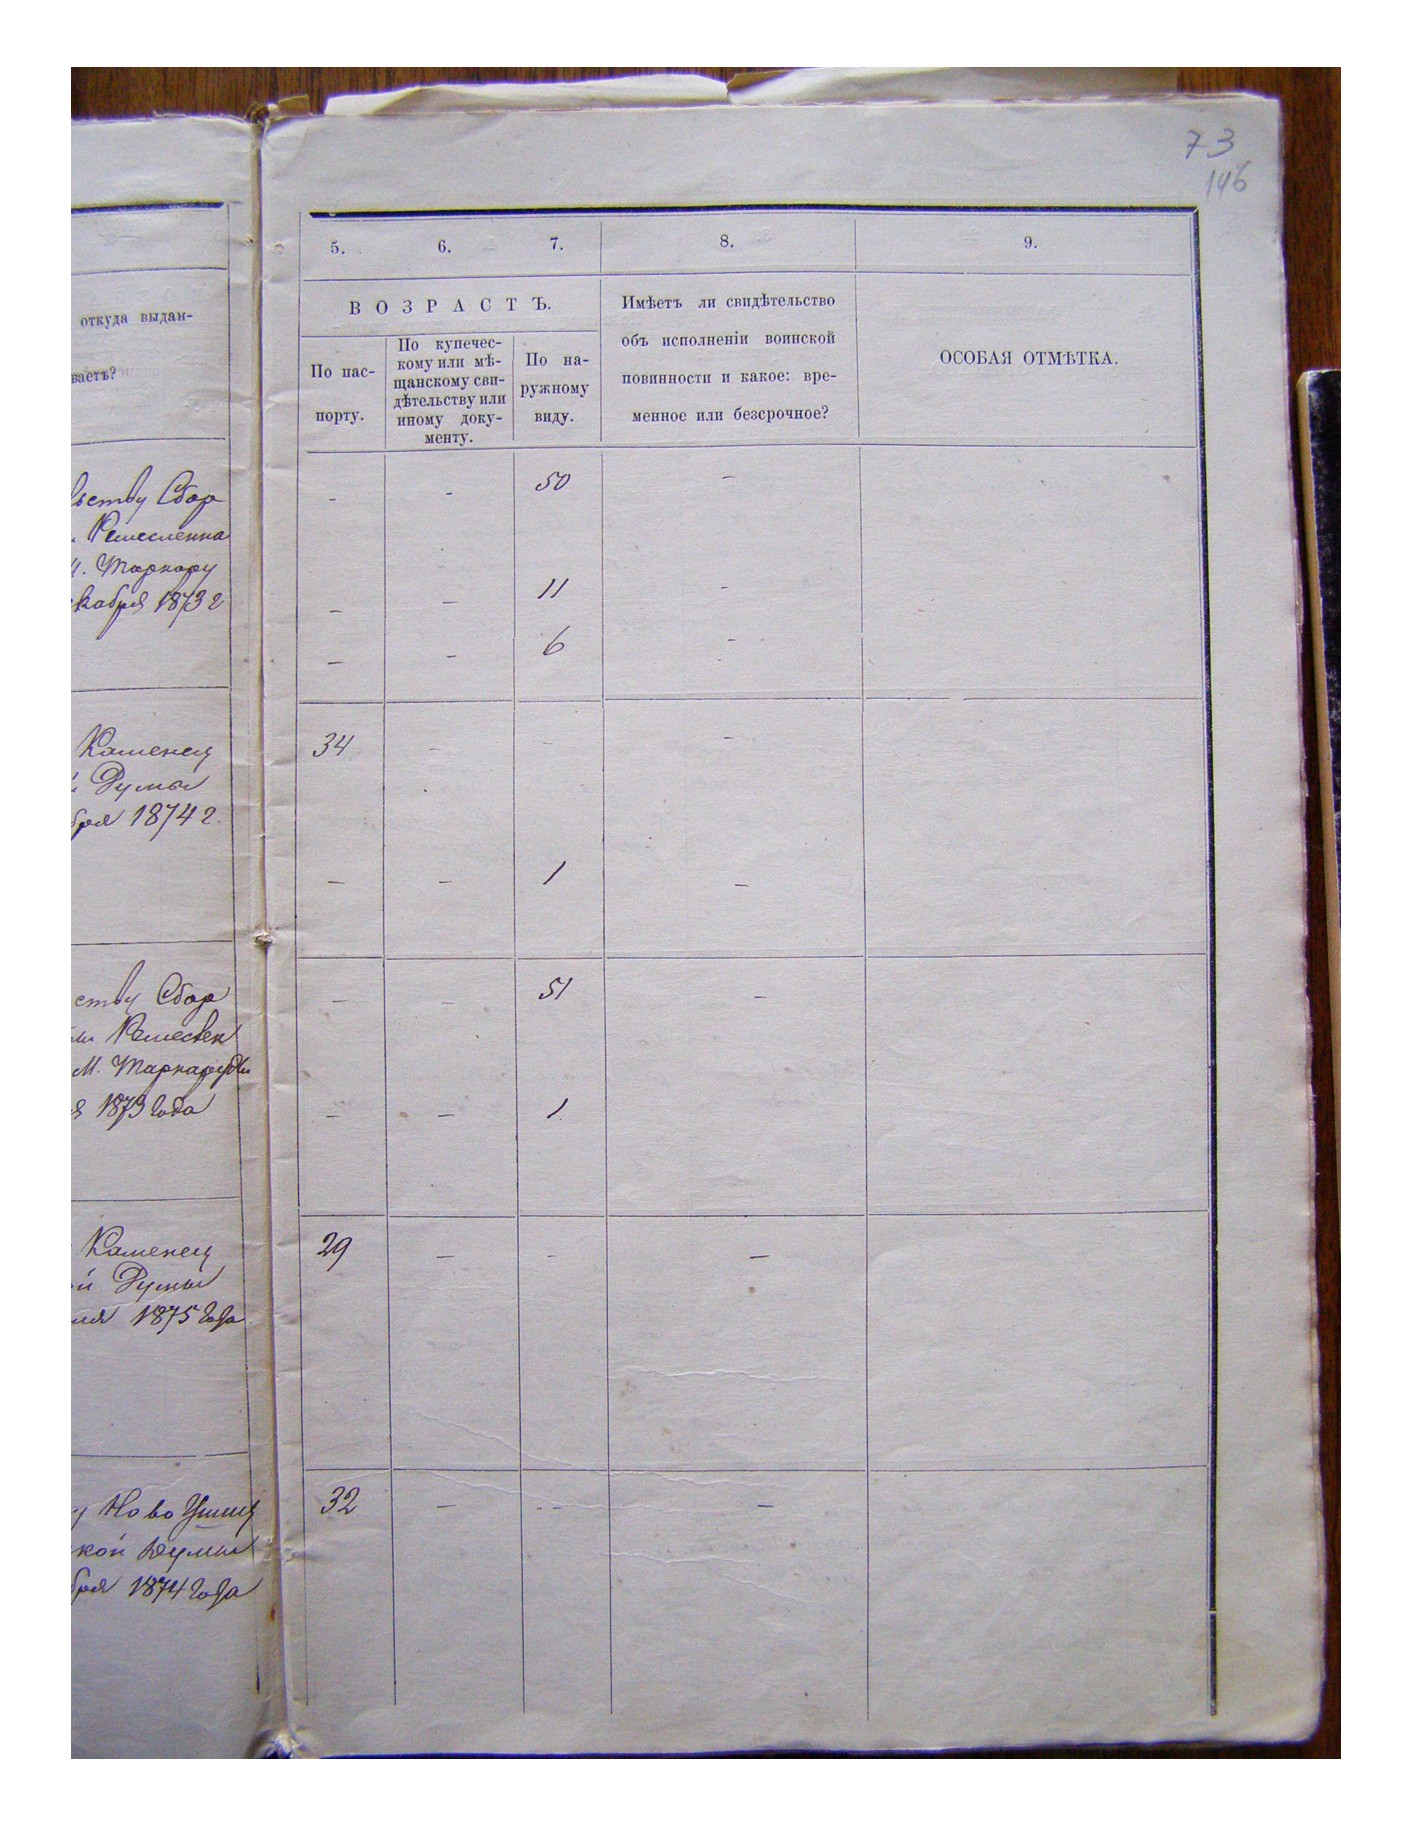 73
146
откуда выдан-
ваетъ?
ьству Сбор
Ремесленна
М. Жаркару
кабря 1873 г
Каменец
й Думы
бря 1874 г.
ству Сбор
Ремеслен
М. Жаркару
я 1873 года
Каменец
ой Думы
1875 года
у Ново Ушиц
ской Думы
бря 1874 года
5. 6. 7. 8. 9.
ВОЗРАСТЪ.
По пас-
порту.
По купечес-
кому или мѣ-
щанскому сви-
дѣтельству или
иному доку-
менту.
По на-
ружному
виду.
Имѣетъ ли свидѣтельство
объ исполненіи воинской
повинности и какое: вре-
менное или безсрочное?
ОСОБАЯ ОТМѢТКА.
- - 50 -
- - 11 -
- - 6 -
34 - - -
- - 1 -
- - 51 -
- - 1
29 - - -
32 - - - -